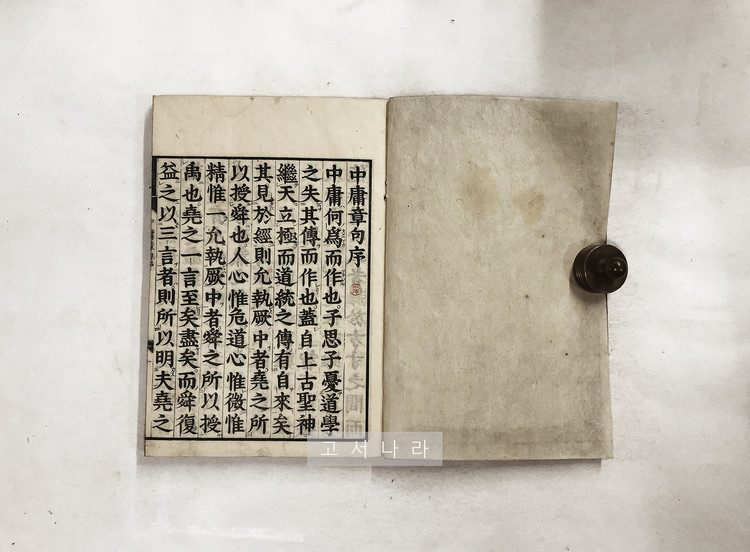 中庸章句序
中庸何爲而作也子思子憂道學
之失其傳而作也蓋自上古聖神
繼天立極而道統之傳有自來矣
其見於經則允執厥中者堯之所
以授舜也人心惟危道心惟微惟
精惟一允執厥中者舜之所以授
禹也堯之一言至矣盡矣而舜復
益之以三言者則所以明夫堯之
고서나라